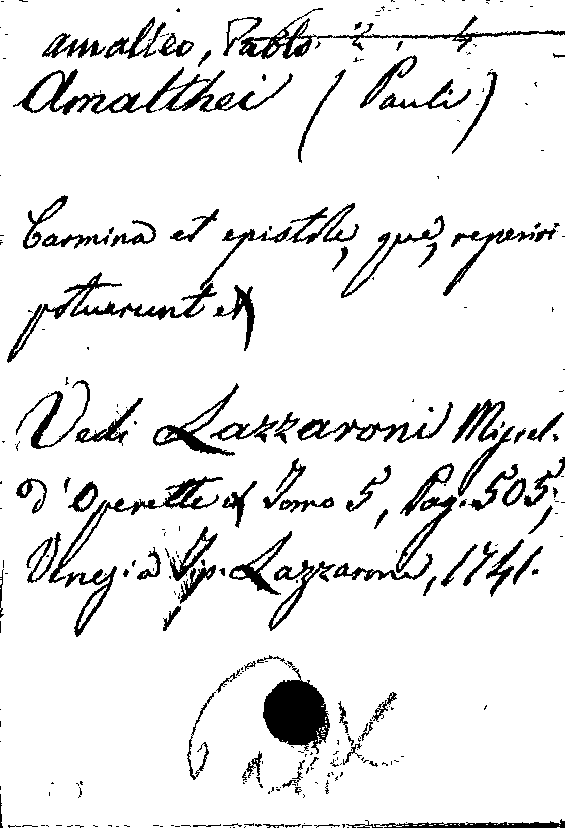 Amalteo, Pablo
Amalthei (Pauli)
Carmina et epistolę, quę reperiri
potuerunt ex
Vedi Lazzaroni Miscel.
d'Operette & Tomo 5, Pag. 505,
Venezia Tip. Lazzaroni, 1741.